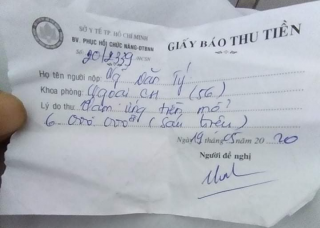 SỞ Y TẾ TP. HỒ CHÍ MINH
BV. PHỤC HỒI CHỨC NĂNG-ĐTBNN
GIẤY BÁO THU TIỀN
Số: 20/2339
Họ tên người nộp: Văn Tý
Khoa phòng: Ngoại CH (56)
Lý do thu: Tạm ứng tiền mổ
6.000.000đ (Sáu triệu)
Ngày 19 tháng 05 năm 20 20
Người đề nghị